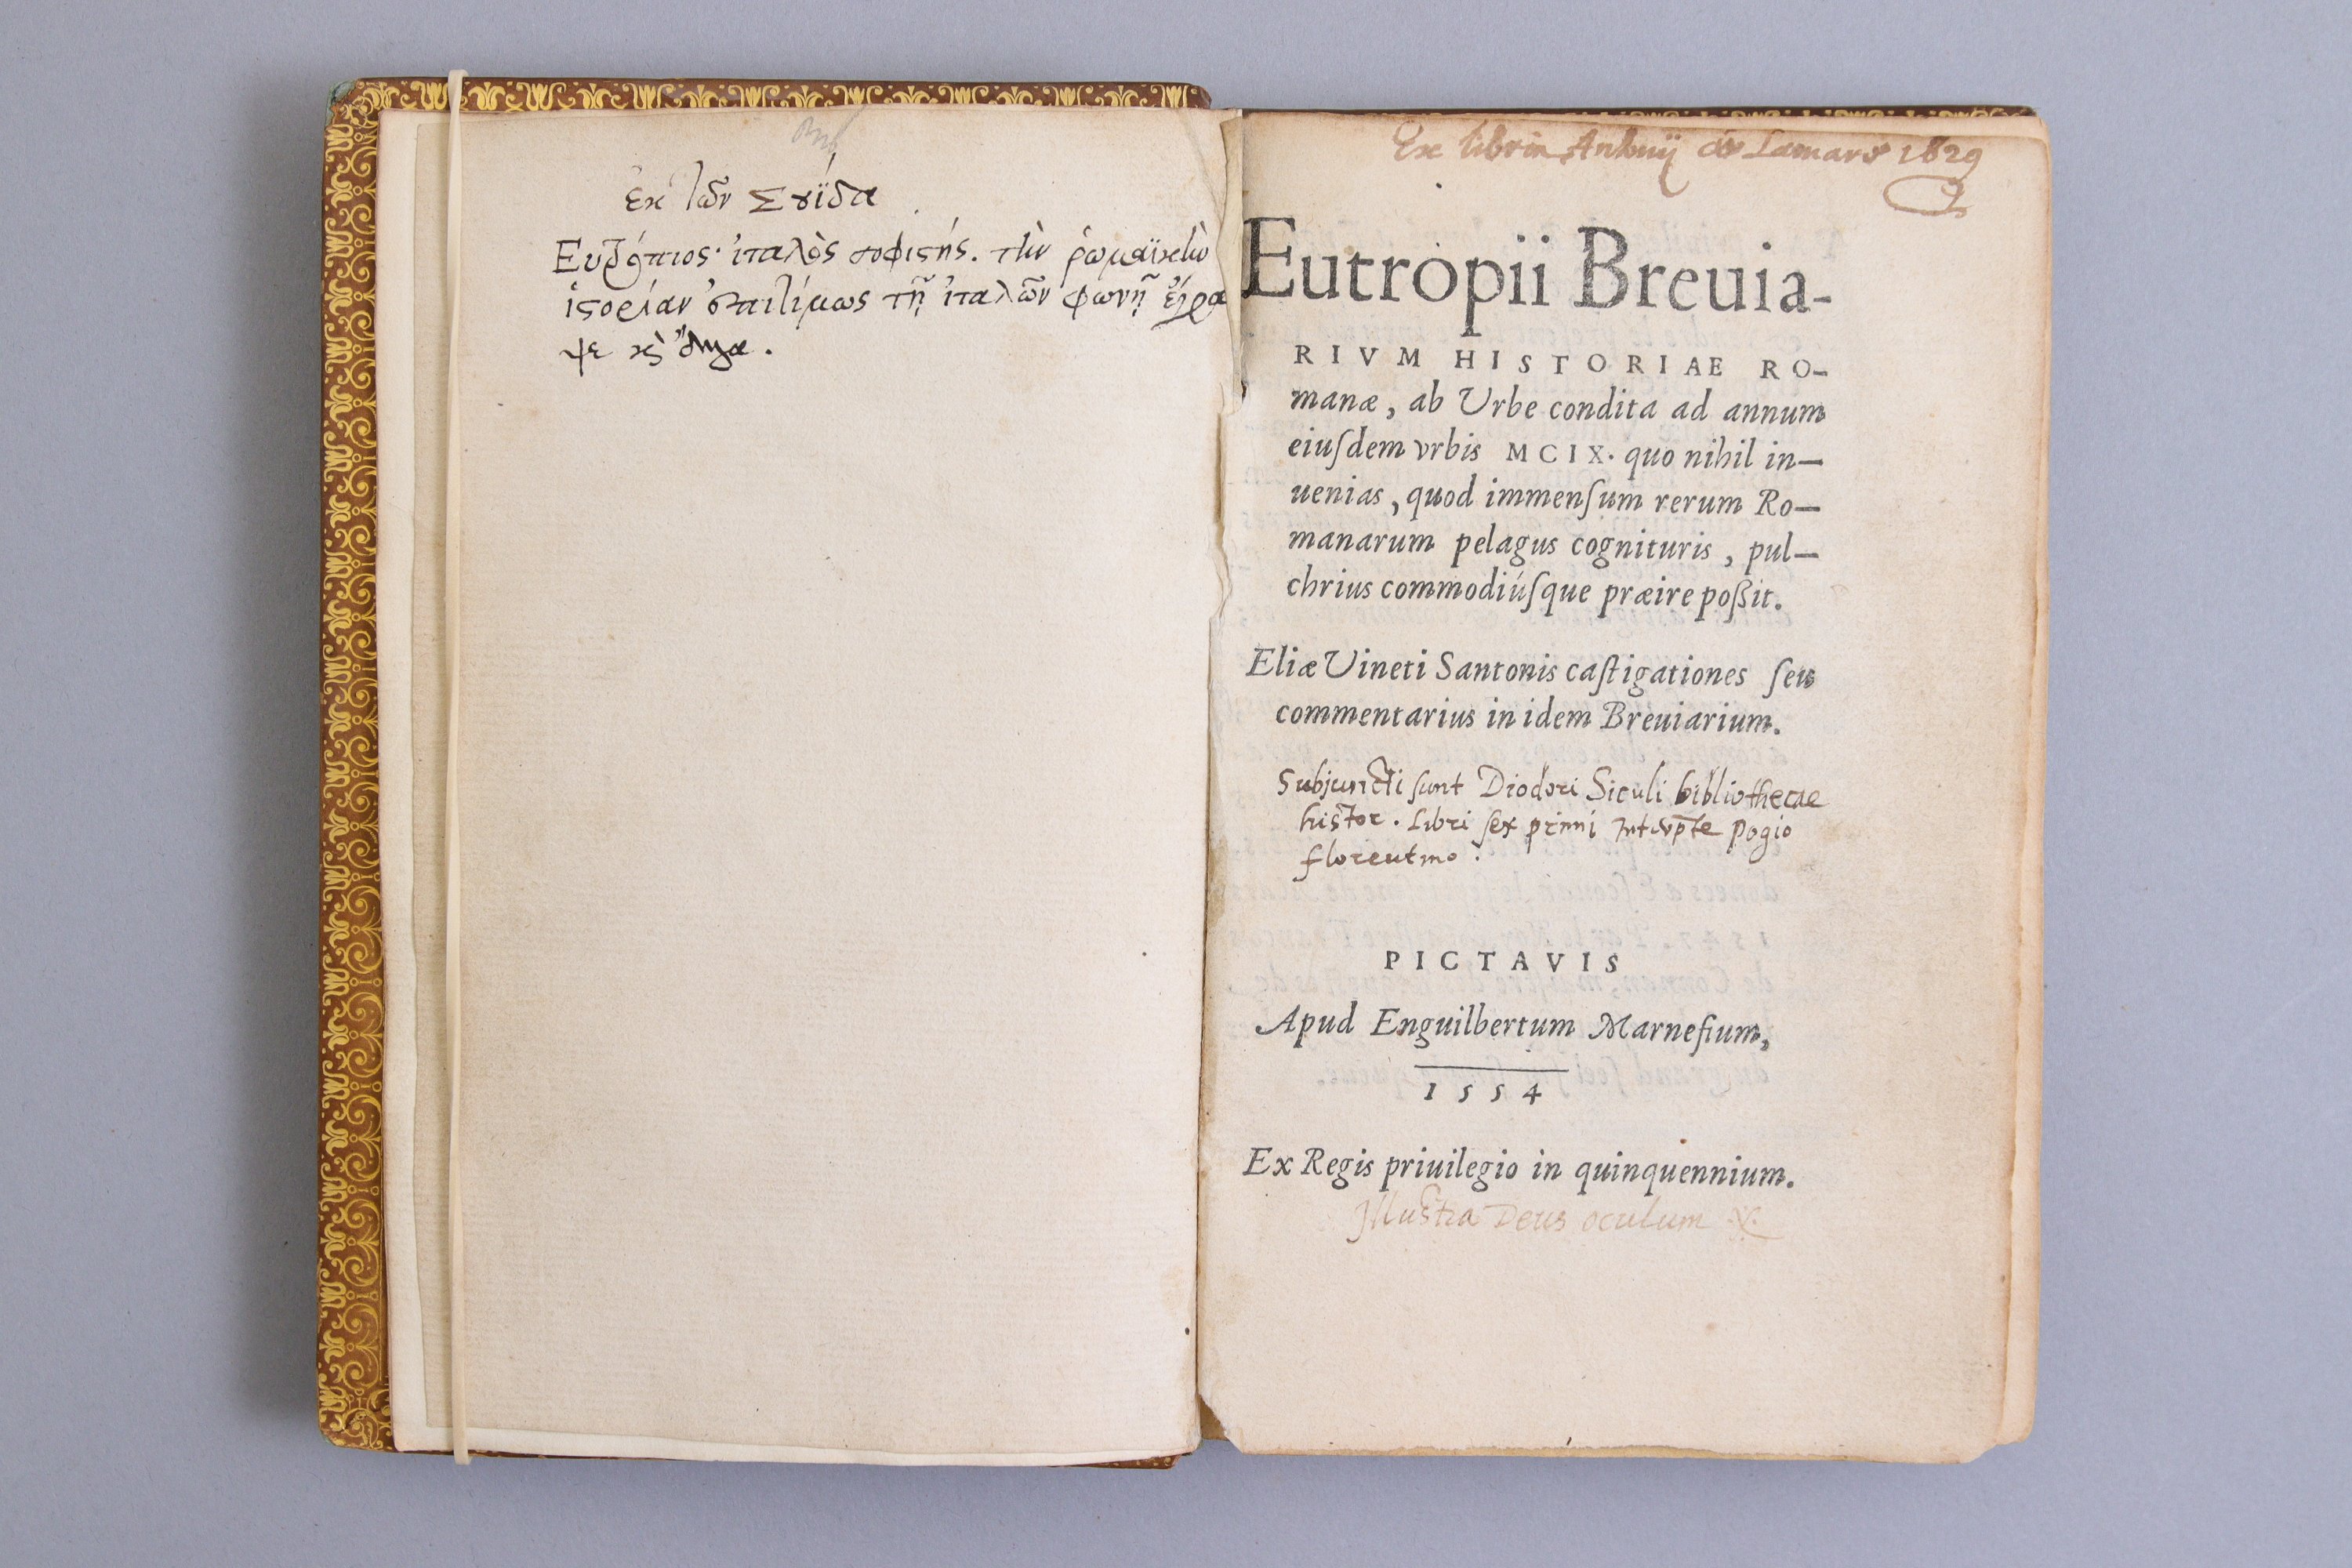 ἐκ τῶν Σουΐδα
Ευτρόπιος· ἰταλὸς σοφιστής. τὴν ῥωμαϊκὴν
ἱστορίαν ἐπιτόμως τῇ ἰταλῶν φωνῇ ἔγρα
ψε καὶ ἄλλα.
Ex libris Antonij de Lamare 1629
Eutropii Breuia-
RIVM HISTORIAE RO-
manæ, ab Urbe condita ad annum
eiuſdem vrbis MCIX. quo nihil in-
uenias, quod immenſum rerum Ro-
manarum pelagus cognituris, pul-
chrius commodiúſque præire poßit.
Eliæ Vineti Santonis caſtigationes ſeu
commentarius in idem Breuiarium.
Subjuncti sunt Diodori Siculi bibliothecae
histor. Libri sex primi Pogio
florentino.
PICTAVIS
Apud Enguilbertum Marnefium,
1554
Ex Regis priuilegio in quinquennium.
Illustra Deus oculum